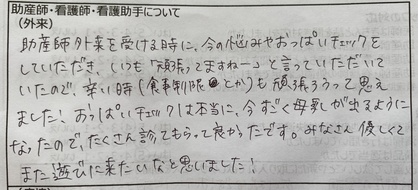 助産師・看護師・看護助手について
(外来)
助産師外来を受ける時に、今の悩みやおっぱいチェックを
していただき、いつも「頑張ってますねー」と言っていただいて
いたので、辛い時(食事制限とか)も頑張ろうって思え
ました、おっぱいチェックは本当に、今すごく母乳が出るように
なったので、たくさん診てもらって良かったです。みなさん優しくて
また遊びに来たいなと思いました!